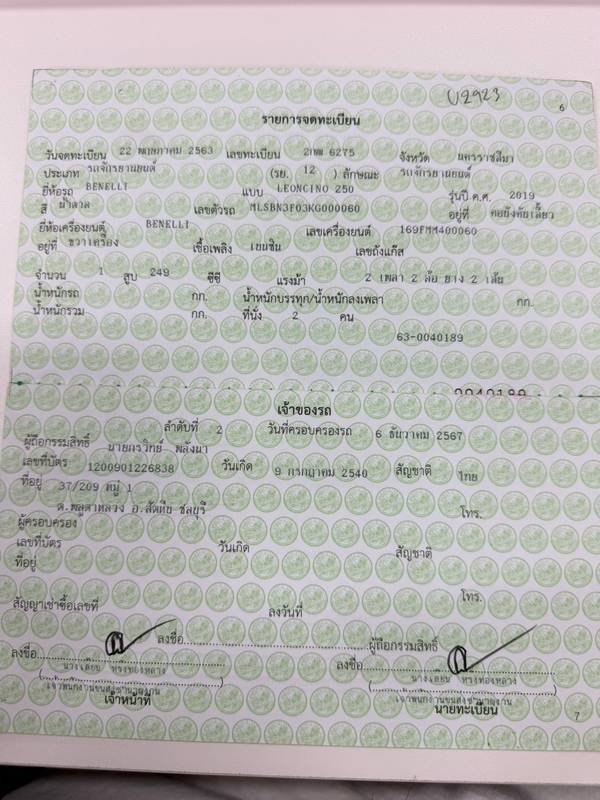 U2923
6
รายการจดทะเบียน
วันจดทะเบียน 22 พฤษภาคม 2563 เลขทะเบียน 2กพ 6275 จังหวัด นครราชสีมา
ประเภท รถจักรยานยนต์ (รย. 12 ) ลักษณะ รถจักรยานยนต์
ยี่ห้อรถ BENELLI แบบ LEONCINO 250 รุ่นปี ค.ศ. 2019
สี น้ำตาล เลขตัวรถ MLSBN3F03KG000060 อยู่ที่ คอบังคับเลี้ยว
ยี่ห้อเครื่องยนต์ BENELLI เลขเครื่องยนต์ 169FMM400060
อยู่ที่ ขวาเครื่อง เชื้อเพลิง เบนซิน เลขถังแก๊ส
จำนวน 1 สูบ 249 ซีซี แรงม้า 2 เพลา 2 ล้อ ยาง 2 เส้น
น้ำหนักรถ กก. น้ำหนักบรรทุก/น้ำหนักลงเพลา กก.
น้ำหนักรวม กก. ที่นั่ง 2 คน
63-0040189
0040189
เจ้าของรถ
ลำดับที่ 2 วันที่ครอบครองรถ 6 ธันวาคม 2567
ผู้ถือกรรมสิทธิ์ นายกรวิทย์ พลังมา
เลขที่บัตร 1200901226838 วันเกิด 9 กรกฎาคม 2540 สัญชาติ ไทย
ที่อยู่ 37/209 หมู่ 1
ต.พลูตาหลวง อ.สัตหีบ ชลบุรี โทร.
ผู้ครอบครอง
เลขที่บัตร วันเกิด สัญชาติ
ที่อยู่
โทร.
สัญญาเช่าซื้อเลขที่ ลงวันที่
ลงชื่อ ผู้ถือกรรมสิทธิ์
ลงชื่อ ลงชื่อ
เจ้าพนักงานขนส่งชำนาญงาน เจ้าพนักงานขนส่งชำนาญงาน
เจ้าหน้าที่ นายทะเบียน
7